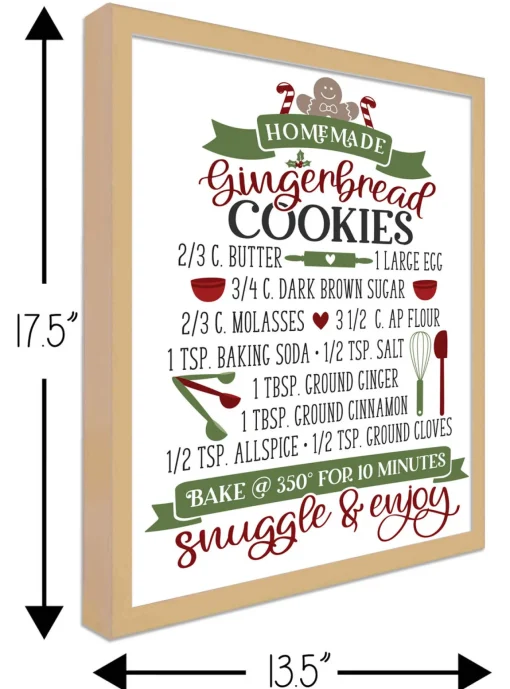 HOMEMADE
Gingerbread
COOKIES
2/3 C. BUTTER 1 LARGE EGG
3/4 C. DARK BROWN SUGAR
2/3 C. MOLASSES 3 1/2 C. AP FLOUR
1 TSP. BAKING SODA • 1/2 TSP. SALT
1 TBSP. GROUND GINGER
1 TBSP. GROUND CINNAMON
1/2 TSP. ALLSPICE • 1/2 TSP. GROUND CLOVES
BAKE @ 350° FOR 10 MINUTES
snuggle & enjoy
17.5”
13.5”